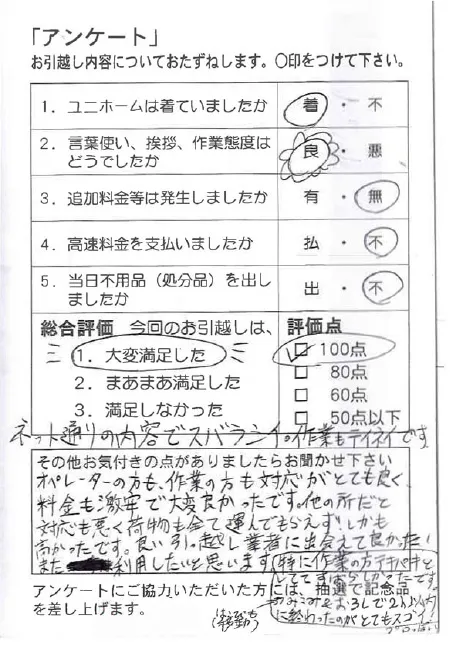 「アンケート」
お引越し内容についておたずねします。〇印をつけて下さい。
1. ユニホームは着ていましたか 着・不
2. 言葉使い、挨拶、作業態度は
どうでしたか 良・悪
3. 追加料金等は発生しましたか 有・無
4. 高速料金を支払いましたか 払・不
5. 当日不用品（処分品）を出し
ましたか 出・不
総合評価 今回のお引越しは、 評価点
1. 大変満足した 100点
2. まあまあ満足した 80点
3. 満足しなかった 60点
50点以下
ネット通りの内容でスバラシイ。作業もテイネイです
その他お気付きの点がありましたらお聞かせ下さい
オペレーターの方も、作業の方も対応がとても良く、
料金も激安で大変良かったです。他の所だと
対応も悪く荷物も全て運んでもらえずしかも
高かったです。良い引っ越し業者に出会えて良かった!
また 利用したいと思います
特に作業の方テキパキと
アンケートにご協力いただいた方には、抽選で記念品
を差し上げます。
おろしで2h以内
に終わったのがとてもスゴイ!